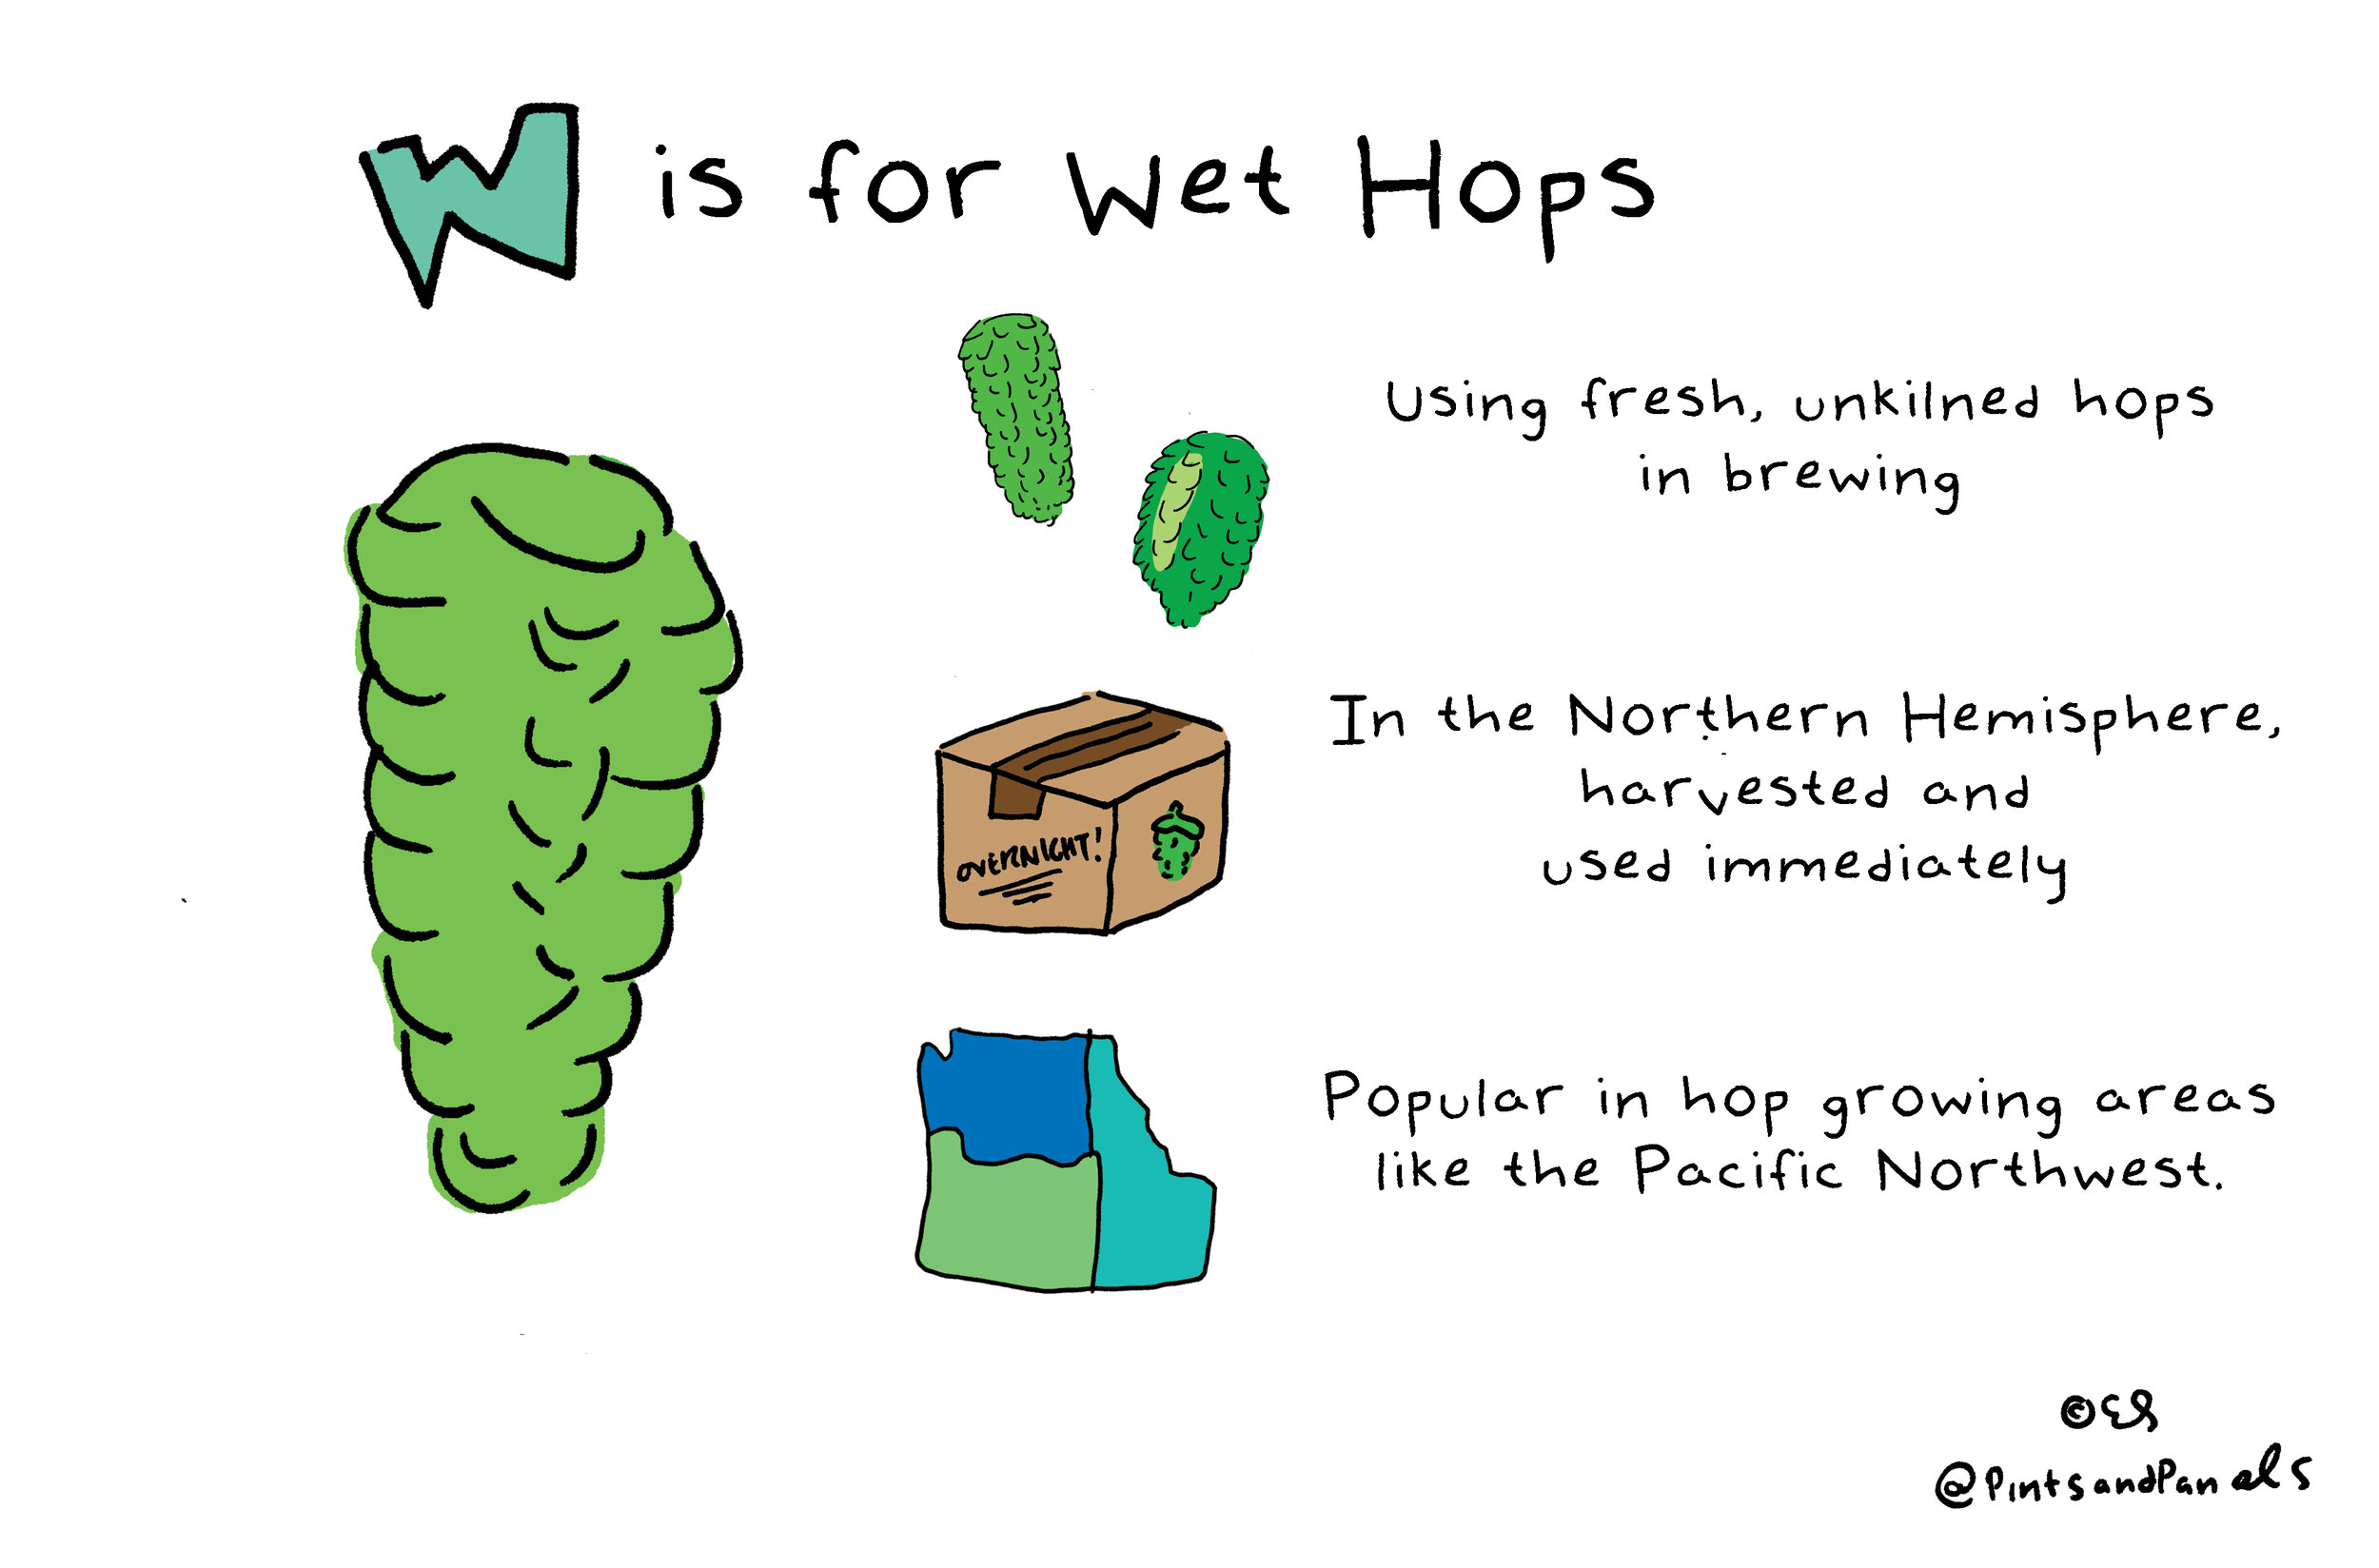 W is for Wet Hops
Using fresh, unkilned hops
in brewing
In the Northern Hemisphere,
harvested and
used immediately
OVERNIGHT!
Popular in hop growing areas
like the Pacific Northwest.
©ES
@PintsandPanels